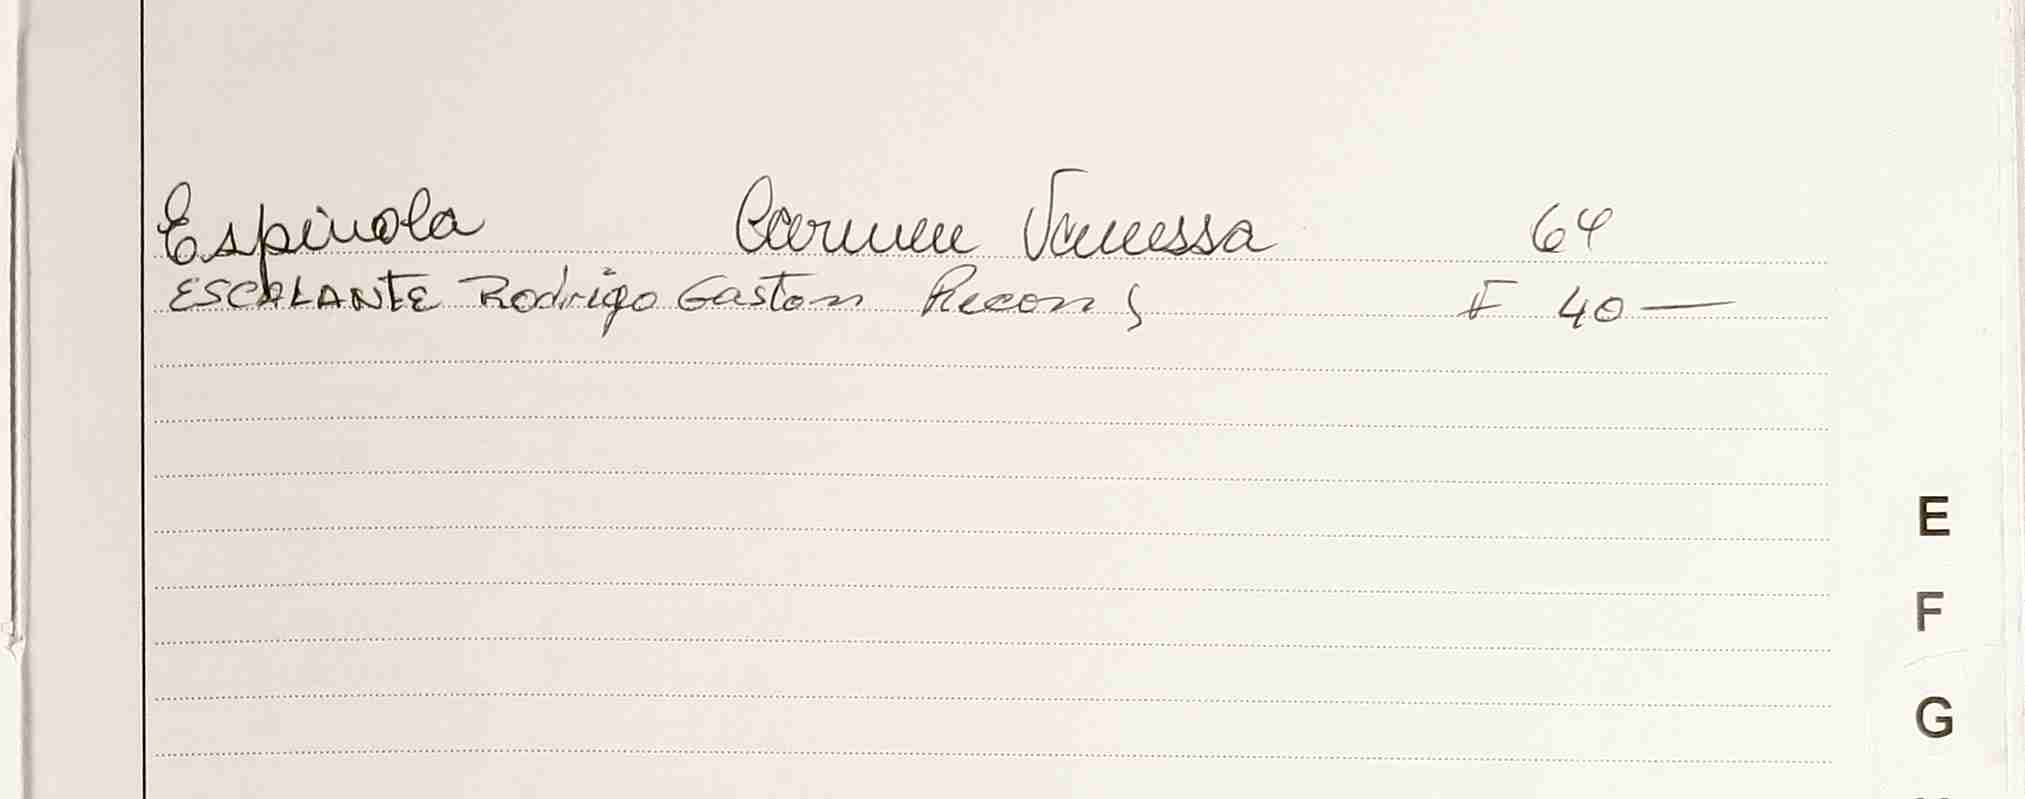 Espinola Carmen Vanessa 64
ESCALANTE Rodrigo Gaston Recon F 40 —
E
F
G